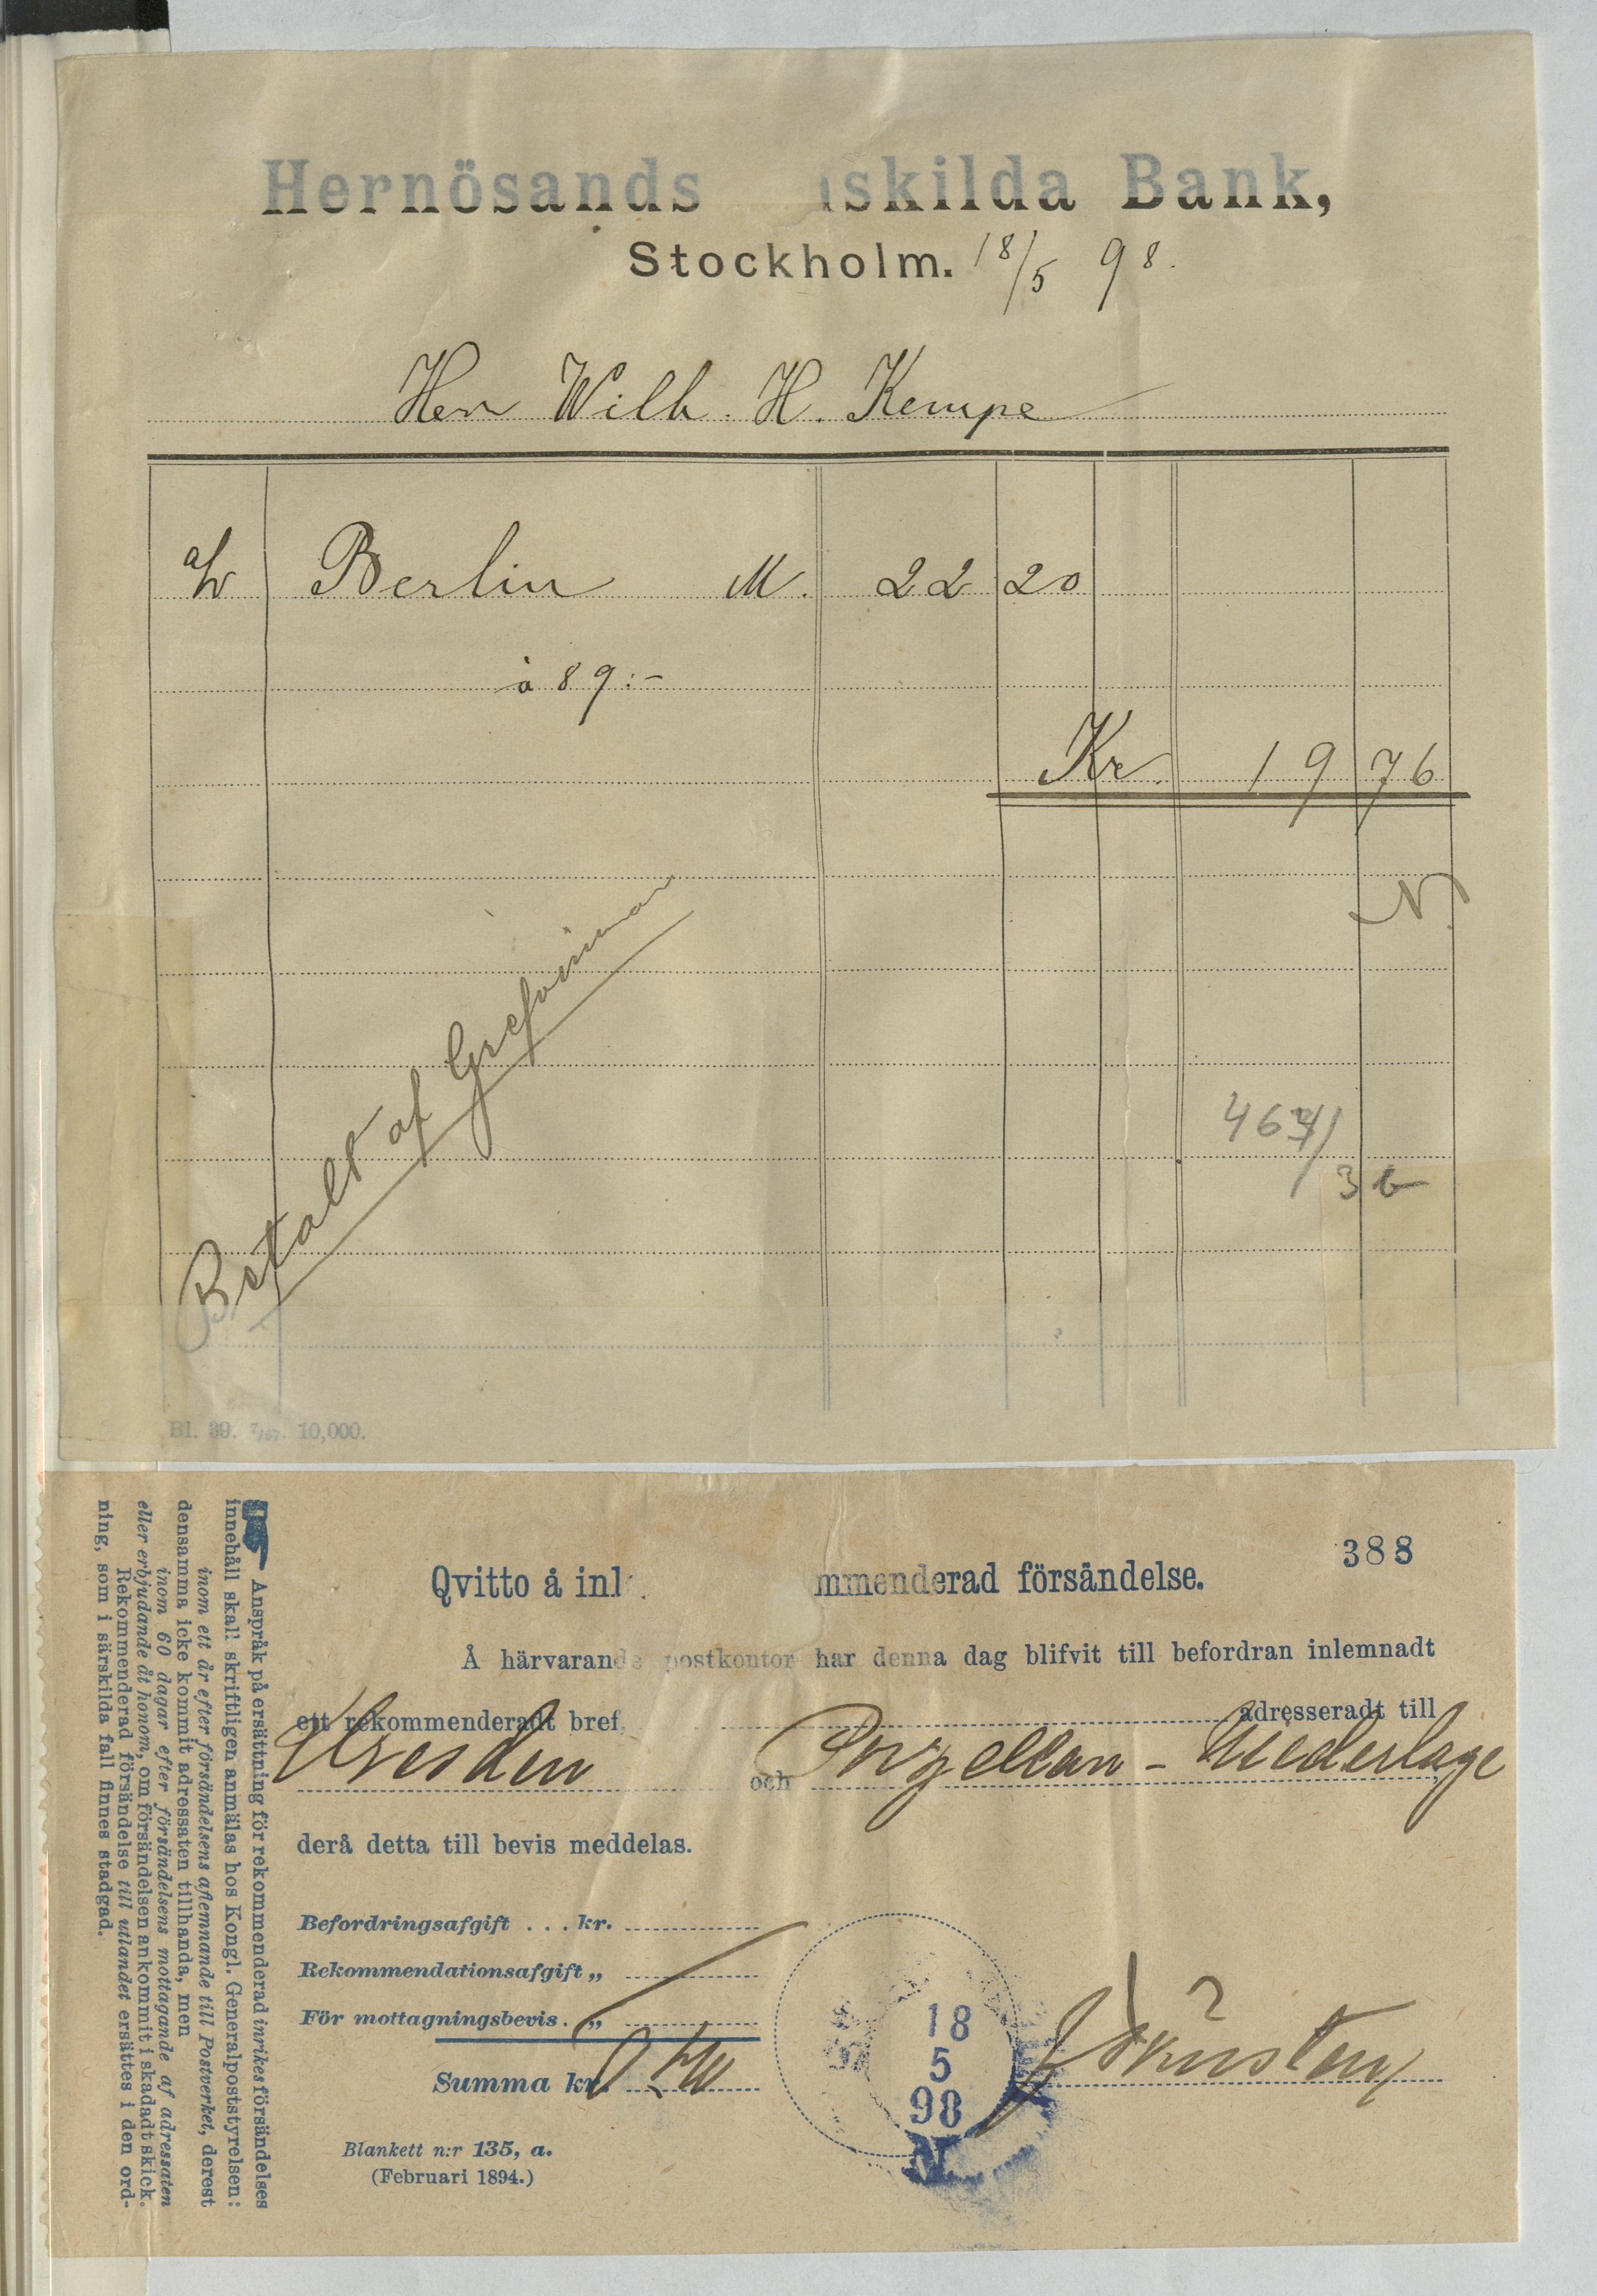 Hernösands skilda Bank,
Stockholm. 18/5 98.
Herr Wilh. H. Kempe
a/v Berlin M. 22 20
à 89:-
Kr. 19 76
Betalt af Grefvinnan
3 b
Bl. 39. 10,000.
388
Qvitto å inl mmenderad försändelse.
Å härvarande postkontor har denna dag blifvit till befordran inlemnadt
ett rekommenderadt bref, adresseradt till
Dresden och Porzellan-Niederlage
derå detta till bevis meddelas.
Befordringsafgift . . . kr.
Rekommendationsafgift „
För mottagningsbevis . „
Summa kr.
18
5
98
N.
Blankett n:r 135, a.
(Februari 1894.)
Anspråk på ersättning för rekommenderad inrikes försändelses
innehåll skall skriftligen anmälas hos Kongl. Generalpoststyrelsen:
inom ett år efter försändelsens aflemnande till Postverket, derest
densamma icke kommit adressaten tillhanda, men
inom 60 dagar efter försändelsens mottagande af adressaten
eller erbjudande åt honom, om försändelsen ankommit i skadadt skick.
Rekommenderad försändelse till utlandet ersättes i den ord-
ning, som i särskilda fall finnes stadgad.